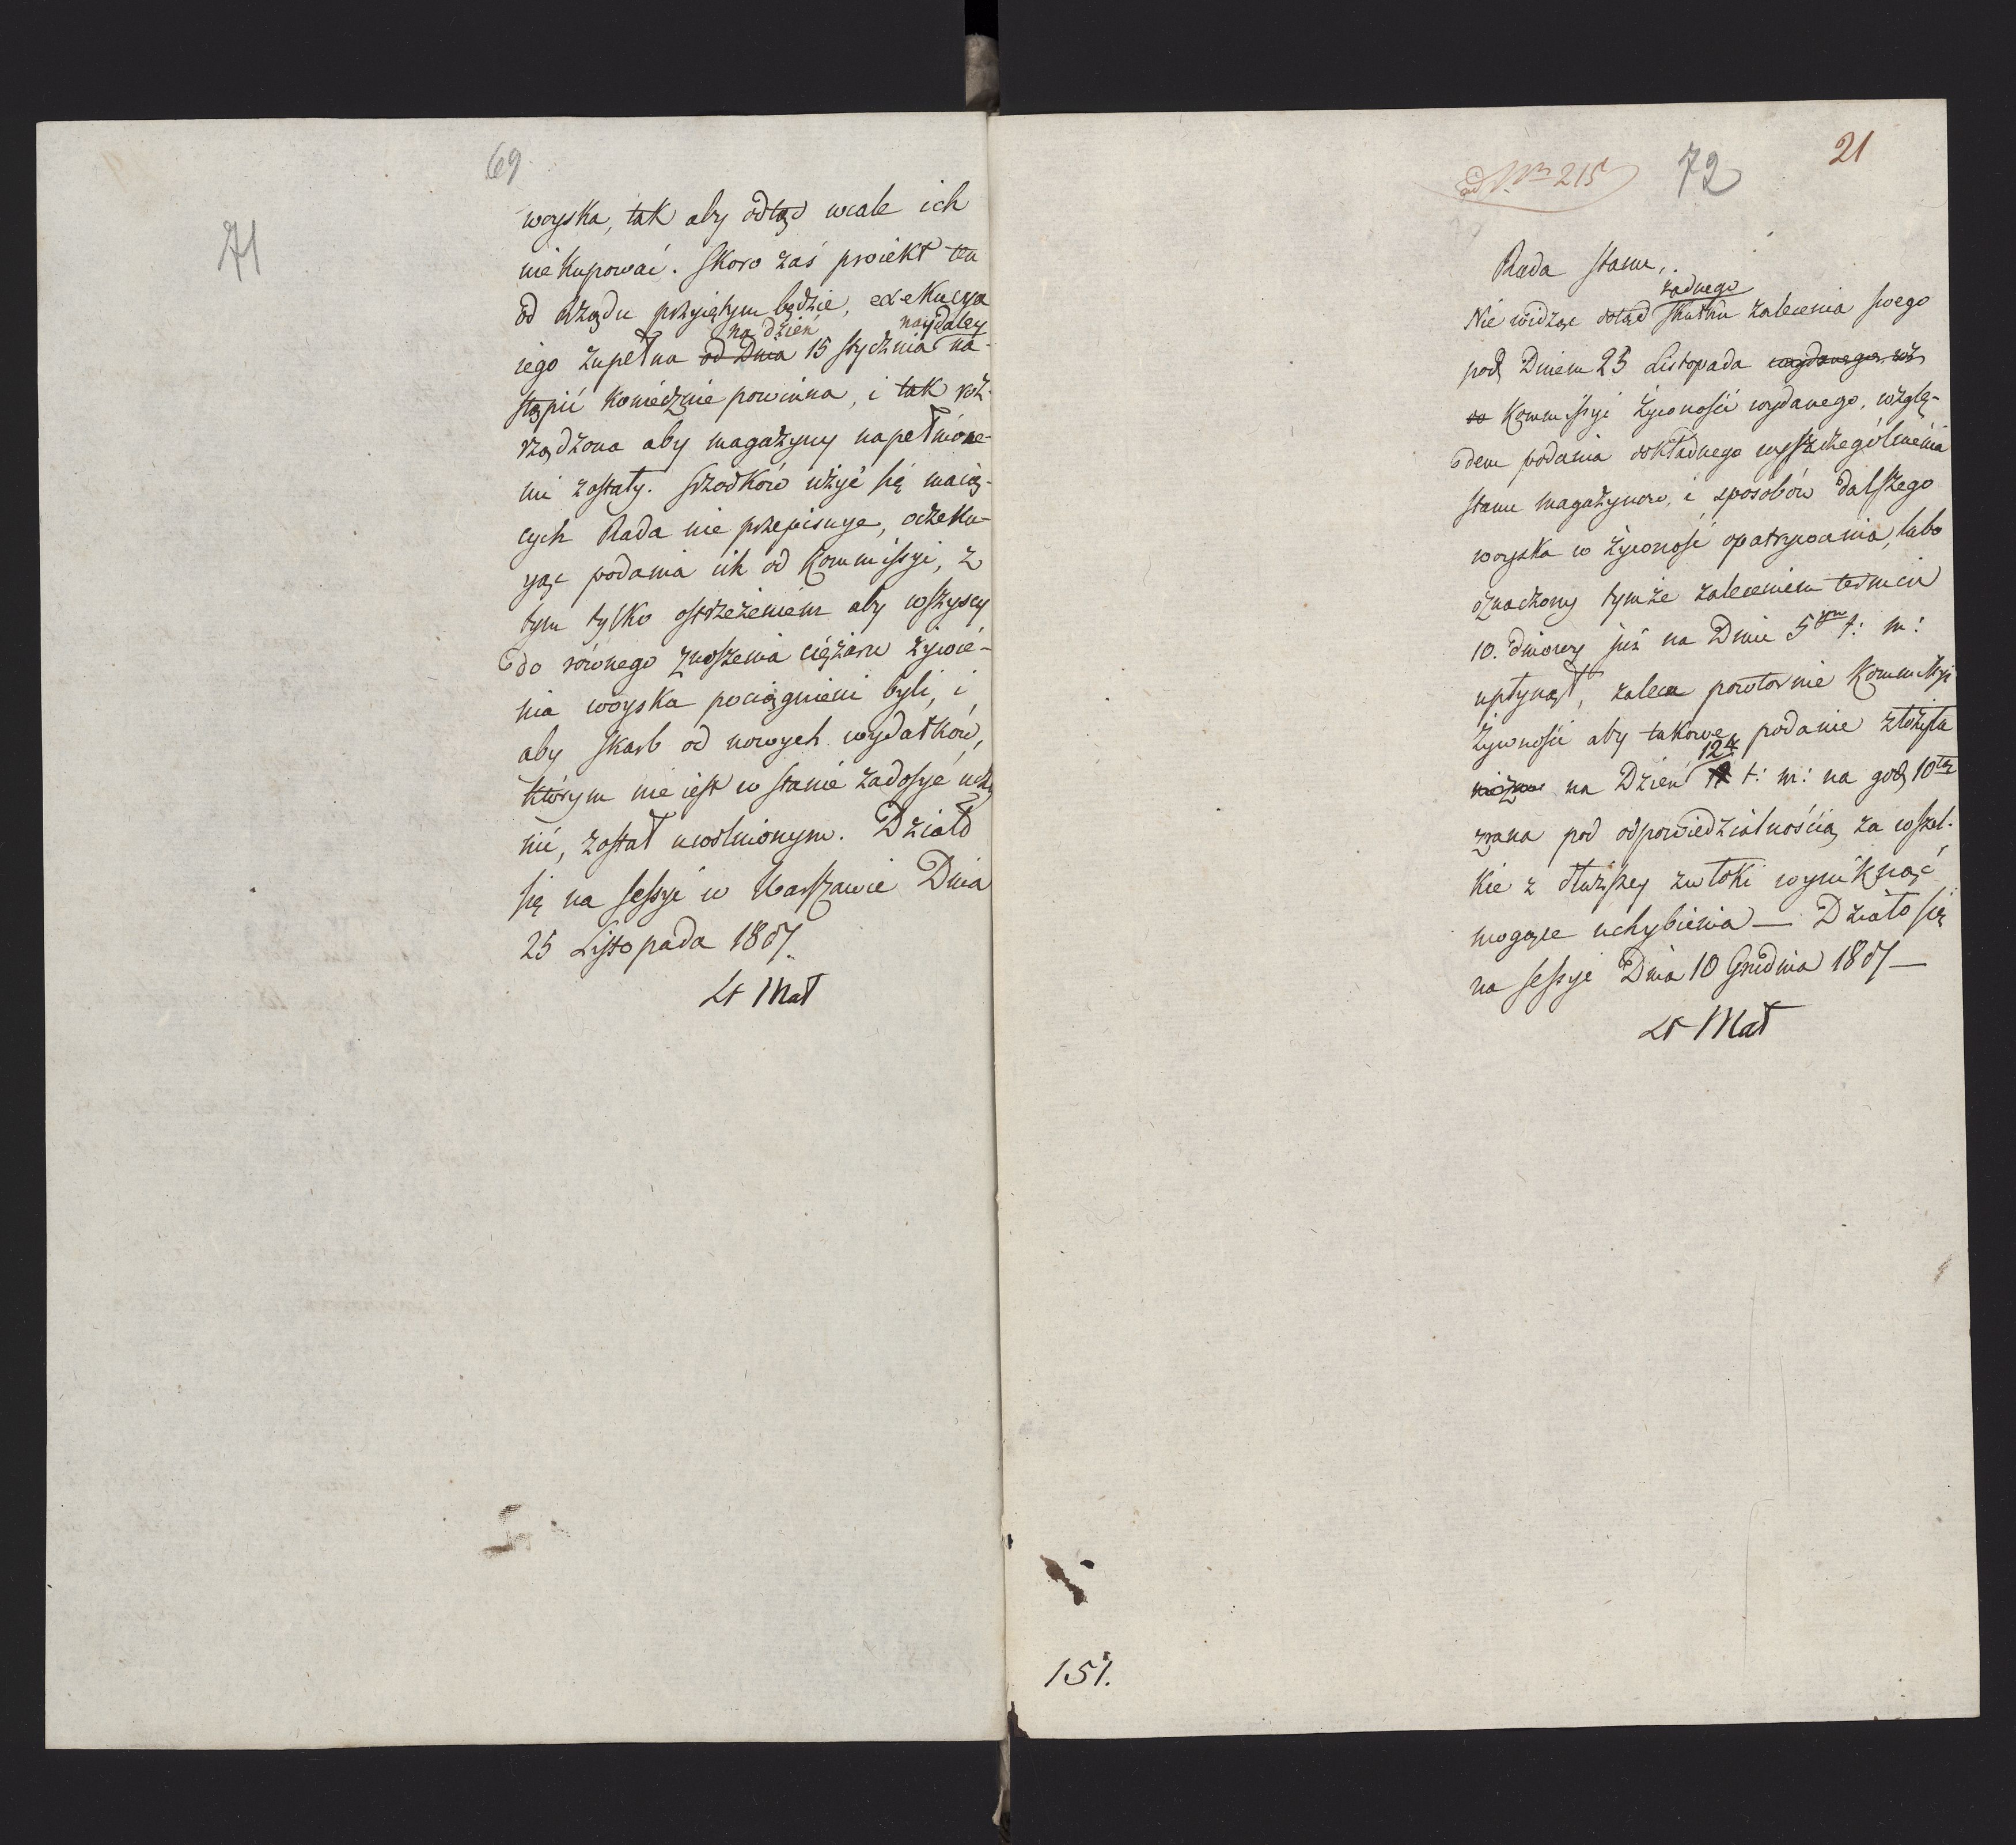 69
71
woyska, tak aby odtąd wcale ich
nie kupować. Skoro zaś proiekt ten
od Rządu przyiętym będzie, exekucya
na dzień naydaley
iego zupełna od Dnia 15 Stycznia na-
stąpić koniecznie powinna, i tak roz-
rządzona aby magazyny napełnione-
mi zostały. Srzodków użyć się maią-
cych Rada nie przepisuye, oczeku-
yąc podania ich od Kommissyi, z
tym tylko ostrzeżeniem aby wszyscy
do równego znoszenia ciężaru żywie-
nia woyska pociągnieni byli, i
aby Skarb od nowych wydatków,
którym nie iest w stanie zadosyć uczy
nić, został uwolnionym. Działo
się na Sessyi w Warszawie Dnia
25 Listopada 1807.
St Mał
ad Nrm 215
72
21
Rada Stanu,
żadnego
Nie widząc dotąd skutku zalecenia swego
pod Dniem 25 Listopada wydanego wz
do Kommissyi Żywności wydanego, wzglę-
dem podania dokładnego wyszczególnienia
stanu magazynów, i sposobów dalszego
woyska w żywność opatrywania, lubo
oznaczony tymże zaleceniem termin
10. dniowy już na Dniu 5ym t: m:
upłynął, zaleca powtornie Kommissyi
Żywności aby takowe podanie złożyła
12
na Dzień t: m: na god 10tą
zrana pod odpowiedzialnością za wszel-
kie z dłuższey zwłoki wyniknąć
mogące uchybienia — Działo się
na Sessyi Dnia 10 Grudnia 1807 —
St Mał
151.